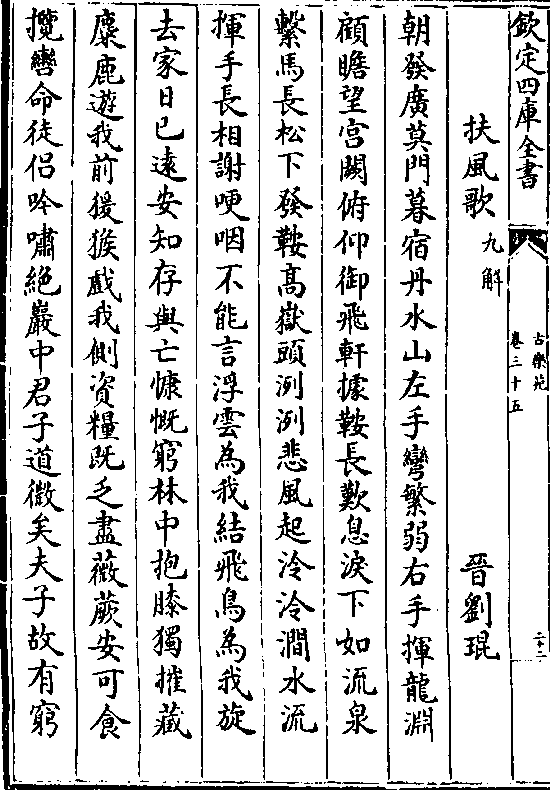 欽定四庫全書
古樂苑
卷三十五
二十二
扶風歌 九解 晉劉琨
朝發廣莫門暮宿丹水山左手彎繁弱右手揮龍淵
顧瞻望宫闕俯仰御飛軒據鞍長歎息淚下如流泉
繫馬長松下發鞍髙嶽頭洌洌悲風起泠泠澗水流
揮手長相謝哽咽不能言浮雲為我結飛鳥為我旋
去家日已逺安知存與亡慷慨窮林中抱膝獨摧藏
麋鹿遊我前猨猴戲我側資糧既乏盡薇蕨安可食
攬轡命徒侣吟嘯絶巖中君子道微矣夫子故有窮